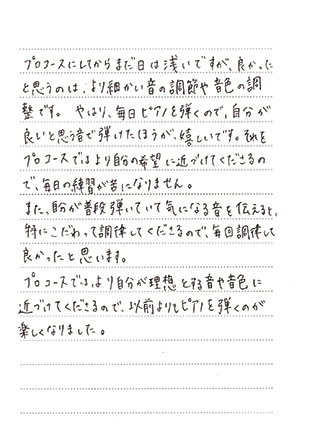 プロコースにしてからまだ日は浅いですが、良かった
と思うのは、より細かい音の調節や音色の調
整です。やはり、毎日ピアノを弾くので、自分が
良いと思う音で弾けたほうが、嬉しいです。それを
プロコースではより自分の希望に近づけてくださるの
で、毎日の練習が苦になりません。
また、自分が普段弾いていて気になる音を伝えると、
特にこだわって調律してくださるので、毎回調律して
良かったと思います。
プロコースでは、より自分が理想とする音や音色に
近づけてくださるので、以前よりもピアノを弾くのが
楽しくなりました。